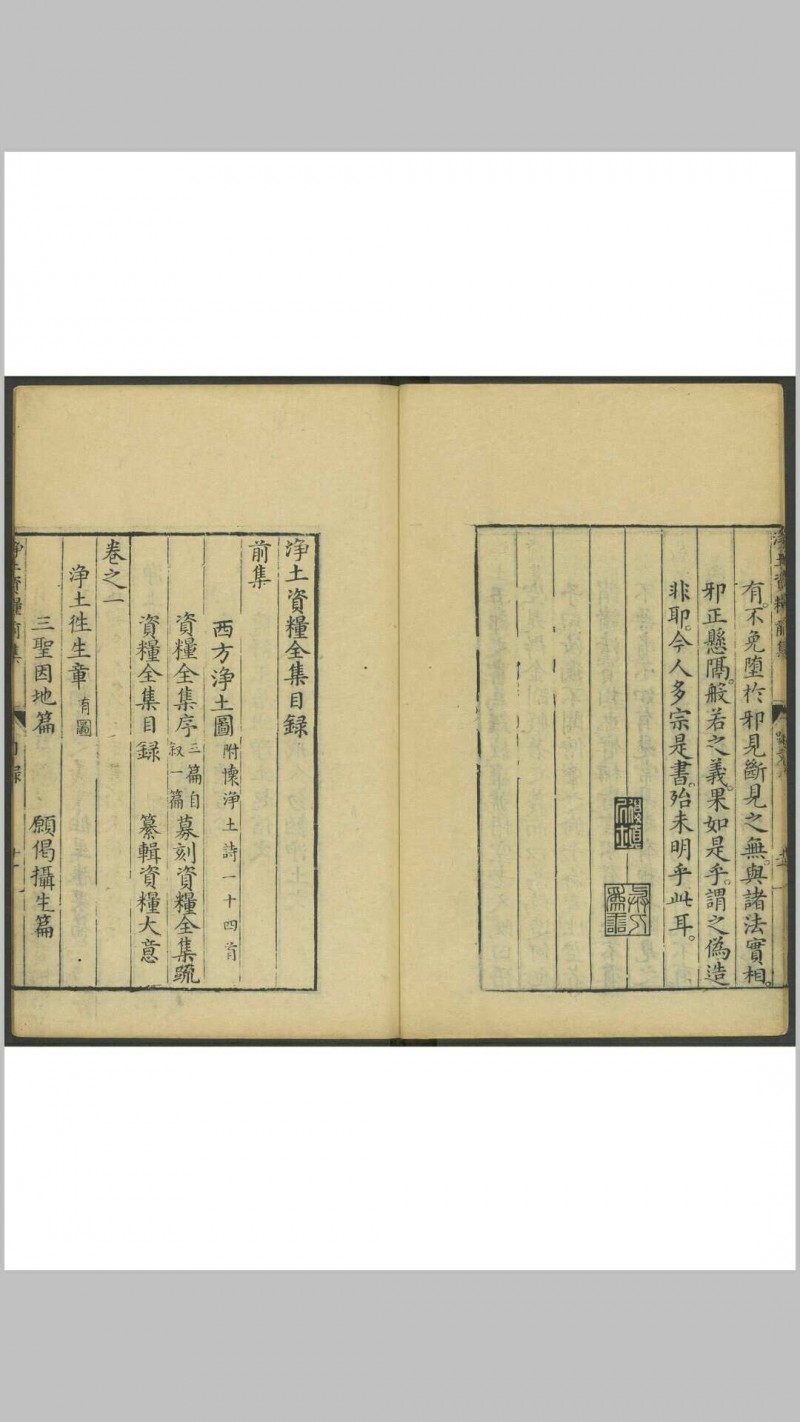 有。不免墮於邪見斷見之無。與諸法實相。
邪正懸隔。般若之義。果如是乎。謂之偽造
非耶。今人多宗是書。殆未明乎此耳。
淨土資糧全集目録
前集
西方淨土圖 附懷淨土詩一十四首
資糧全集序 三篇自叙一篇 募刻資糧全集䟽
資糧全集目録 纂輯資糧大意
卷之一
淨土徃生章 有圖
三聖因地篇 願偈攝生篇